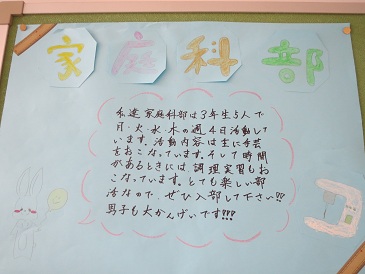 家庭科部
私達家庭科部は3年生5人で
月・火・水・木の週4日活動して
います。活動内容は主に手芸
をおこなっています。そして時間
があるときには、調理実習もお
こなっています。とても楽しい部
活なので、ぜひ入部して下さい!!
男子も大かんげいです!!!